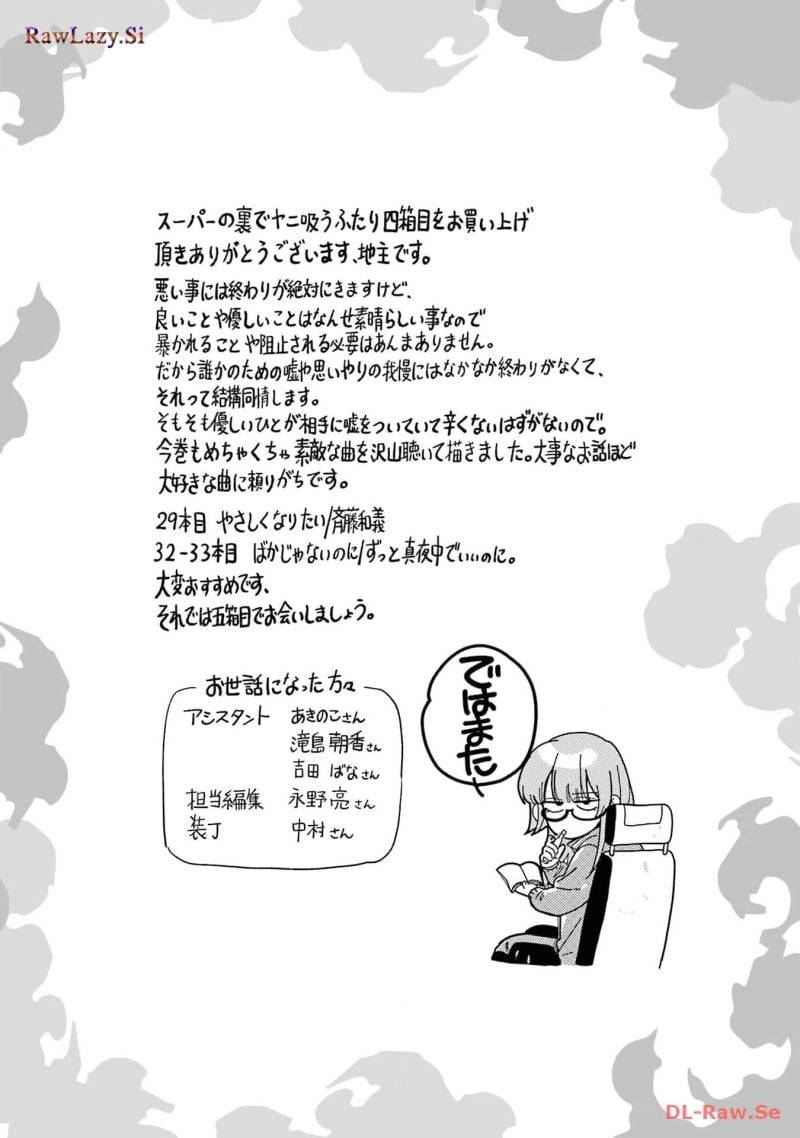 RawLazy.Si
スーパーの裏でヤニ吸うふたり四箱目をお買い上げ
頂きありがとうございます、地主です。
悪い事には終わりが絶対にきますけど、
良いことや優しいことはなんせ素晴らしい事なので
暴かれることや阻止される必要はあんまありません。
だから誰かのための嘘や思いやりの我慢にはなかなか終わりがなくて、
それって結構同情します。
そもそも優しいひとが相手に嘘をついていて辛くないはずがないので。
今巻もめちゃくちゃ素敵な曲を沢山聴いて描きました。大事なお話ほど
大好きな曲に頼りがちです。
29本目 やさしくなりたい/斉藤和義
32-33本目 ばかじゃないのに/ずっと真夜中でいいのに。
大変おすすめです、
それでは五箱目でお会いしましょう。
お世話になった方々
アシスタント あきのこさん
滝島朝香さん
吉田ばなさん
担当編集 永野亮さん
装丁 中村さん
ではまた
DL-Raw.Se